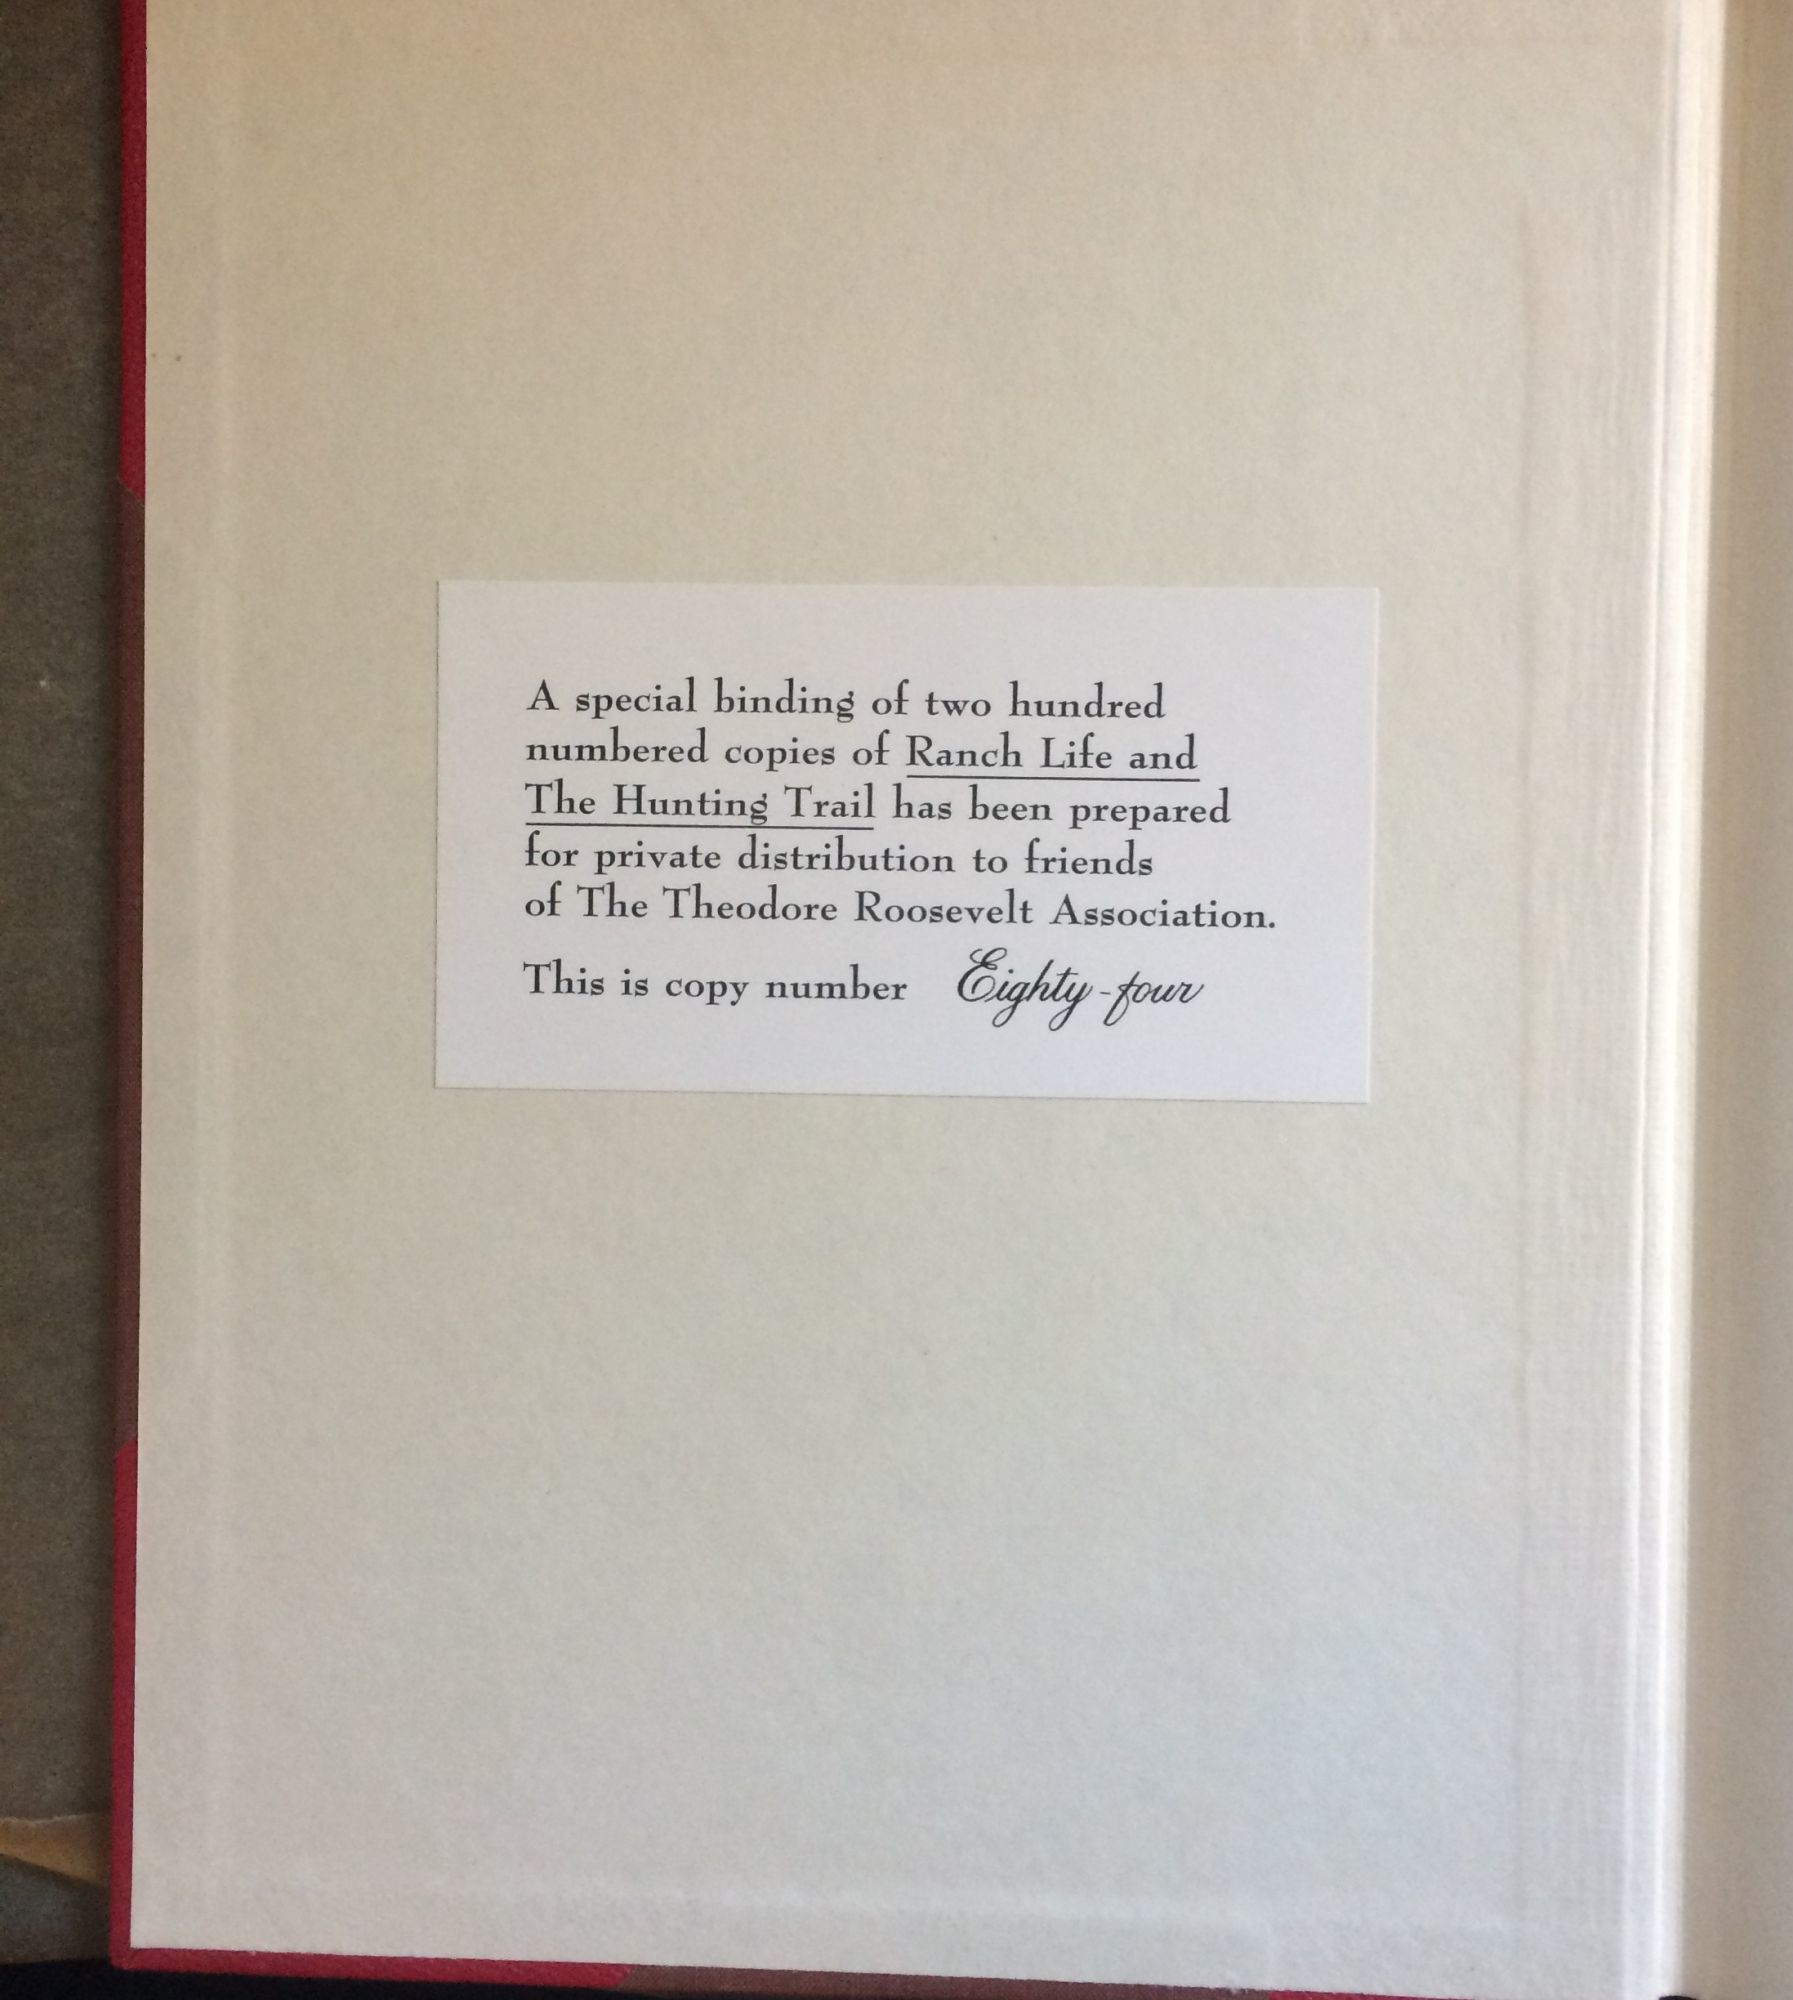 A special binding of two hundred
numbered copies of Ranch Life and
The Hunting Trail has been prepared
for private distribution to friends
of The Theodore Roosevelt Association.
This is copy number Eighty-four